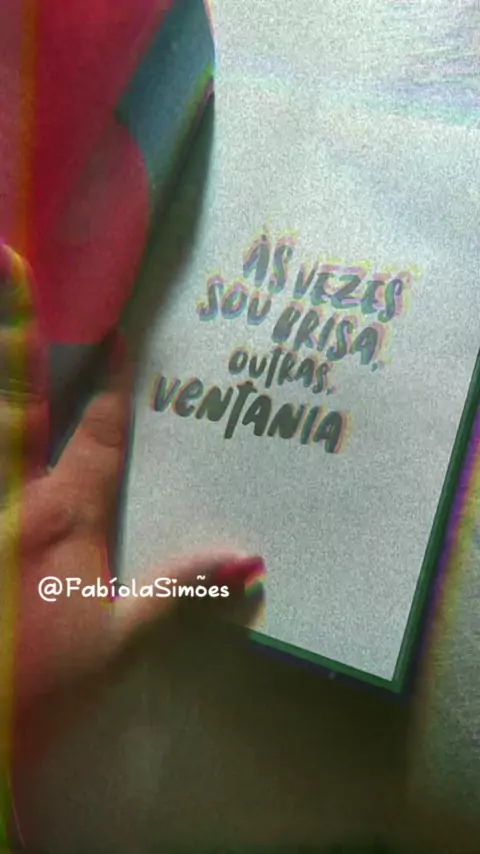 ÀS VEZES
SOU BRISA,
OUTRAS,
VENTANIA
@FabíolaSimões